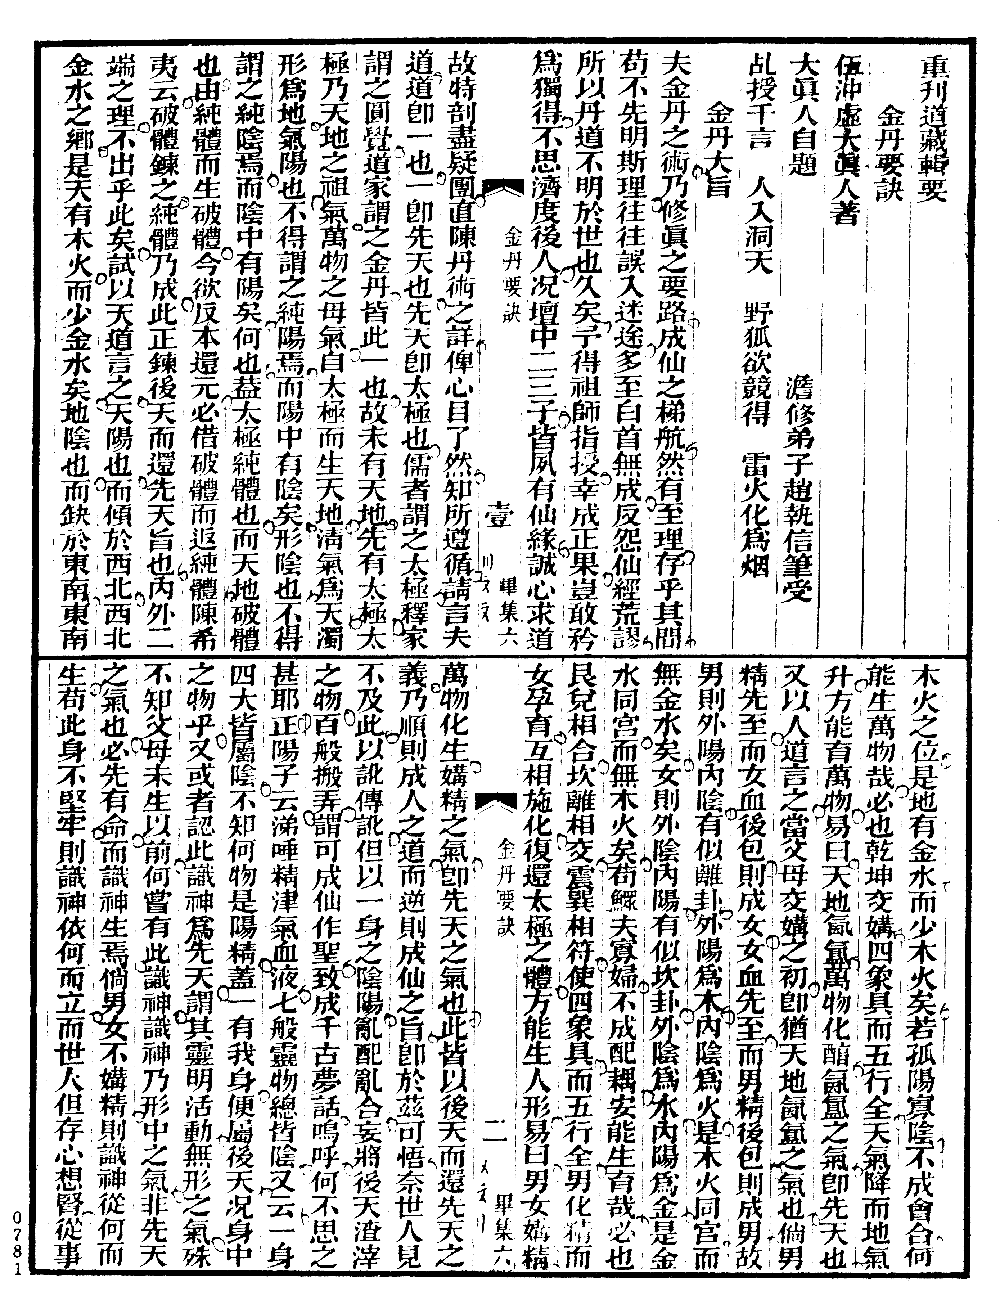 重刋道藏輯要
金丹要訣
伍沖虛大眞人著
大眞人自題　澹修弟子趙執信筆受
乩授千言　人入洞天　野狐欲競得　雷火化爲烟
金丹大旨
夫金丹之術乃修眞之要路成仙之梯航然有至理存乎其間
苟不先明斯理往往誤入迷途多至白首無成反怨仙經荒謬
所以丹道不明於世也久矣予得祖師指授幸成正果豈敢矜
爲獨得不思濟度後人况壇中二三子皆夙有仙緣誠心求道
金丹要訣　壹　畢集六
故特剖盡疑團直陳丹術之詳俾心目了然知所遵循請言夫
道道卽一也一卽先天也先天卽太極也儒者謂之太極釋家
謂之圓覺道家謂之金丹皆此一也故未有天地先有太極太
極乃天地之祖氣萬物之母氣自太極而生天地淸氣爲天濁
形爲地氣陽也不得謂之純陽焉而陽中有陰矣形陰也不得
謂之純陰焉而陰中有陽矣何也葢太極純體也而天地破體
也由純體而生破體今欲反本還元必借破體而返純體陳希
夷云破體鍊之純體乃成此正鍊後天而還先天旨也內外二
端之理不出乎此矣試以天道言之天陽也而傾於西北西北
金水之鄉是天有木火而少金水矣地陰也而缺於東南東南
木火之位是地有金水而少木火矣若孤陽寡陰不成會合何
能生萬物哉必也乾坤交媾四象具而五行全天氣降而地氣
升方能育萬物易曰天地氤氳萬物化醕氤氳之氣卽先天也
又以人道言之當父母交媾之初卽猶天地氤氳之氣也倘男
精先至而女血後包則成女女血先至而男精後包則成男故
男則外陽內陰有似離卦外陽爲木內陰爲火是木火同宫而
無金水矣女則外陰內陽有似坎卦外陰爲水內陽爲金是金
水同宮而無木火矣苟鰥夫寡婦不成配耦安能生育哉必也
艮兌相合坎離相交震巽相符使四象具而五行全男化精而
女孕育互相施化復還太極之體方能生人形易曰男女媾精
金丹要訣　二　畢集六
萬物化生媾精之氣卽先天之氣也此皆以後天而還先天之
義乃順則成人之道而逆則成仙之旨卽於茲可悟奈世人見
不及此以訛傳訛但以一身之陰陽亂配亂合妄將後天渣滓
之物百般搬弄謂可成仙作聖致成千古夢話嗚呼何不思之
甚耶正陽子云涕唾精津氣血液七般靈物總皆陰又云一身
四大皆屬陰不知何物是陽精蓋一有我身便屬後天况身中
之物乎又或者認此識神爲先天謂其靈明活動無形之氣殊
不知父母未生以前何嘗有此識神識神乃形中之氣非先天
之氣也必先有命而識神生焉倘男女不媾精則識神從何而
生苟此身不堅牢則識神依何而立而世人但存心想腎從事
0781